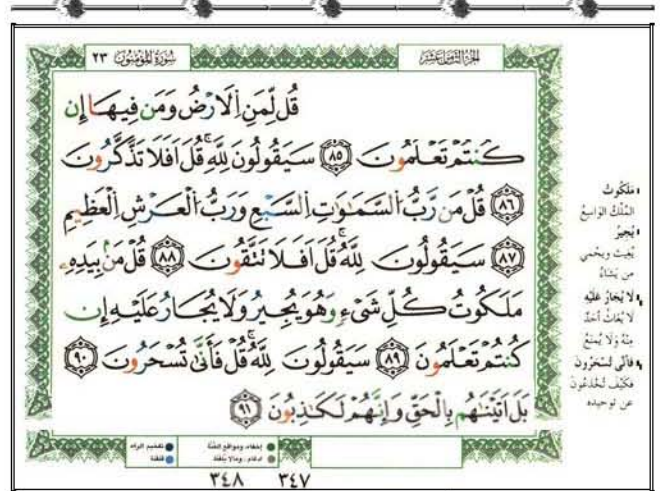 الجزء الثامن عشر
سورة المؤمنون ٢٣
قُل لِّمَنِ اِلَارْضُ وَمَن فِيهَا إِن
كُنتُمْ تَعْلَمُونَ ٨٥ سَيَقُولُونَ لِلَّهِ قُلَ اَفَلَا تَذَّكَّرُونَ
٨٦ قُلْ مَن رَّبُّ السَّمَٰوَٰتِ اِلسَّبْعِ وَرَبُّ الْعَرْشِ اِلْعَظِيمِ
٨٧ سَيَقُولُونَ لِلَّهِ قُلَ اَفَلَا تَتَّقُونَ ٨٨ قُلْ مَنۢ بِيَدِهِۦ
مَلَكُوتُ كُلِّ شَيْءٍ وَهُوَ يُجِيرُ وَلَا يُجَارُ عَلَيْهِ إِن
كُنتُمْ تَعْلَمُونَ ٨٩ سَيَقُولُونَ لِلَّهِ قُلْ فَأَنَّىٰ تُسْحَرُونَ ٩٠
بَلَ اَتَيْنَٰهُم بِالْحَقِّ وَإِنَّهُمْ لَكَٰذِبُونَ ٩١
مَلَكُوتُ
المُلْكُ الوَاسِعُ
يُجِيرُ
يُغِيثُ ويَحْمِي
مَن يَشَاءُ
لَا يُجَارُ عَلَيْهِ
لَا يُغَاثُ أحَدٌ
مِنْهُ وَلَا يُمْنَعُ
فَأَنَّى تُسْحَرُونَ
فَكَيْفَ تُخْدَعُونَ
عن توحيده
إخفاء، ومواقع الغُنَّة
ادغام، وما لا يُلفَظ
تفخيم الراء
قلقلة
٣٤٧
٣٤٨